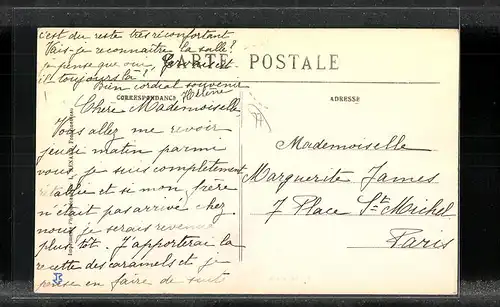 c'est du reste très réconfortant
Vais-je reconnaître la salle?
je pense que oui,
il toujours là?
Bien cordial souvenir
Hélène
CARTE POSTALE
CORRESPONDANCE
ADRESSE
Chère Mademoiselle
Vous allez me revoir
jeudi matin parmi
vous, je suis complètement
rétablie et si mon frère
n'était pas arrivé chez
nous je serais revenue
plus tôt. J'apporterai la
recette des caramels et je
pense en faire de suite
Mademoiselle
Marguerite James
7 Place St Michel
Paris